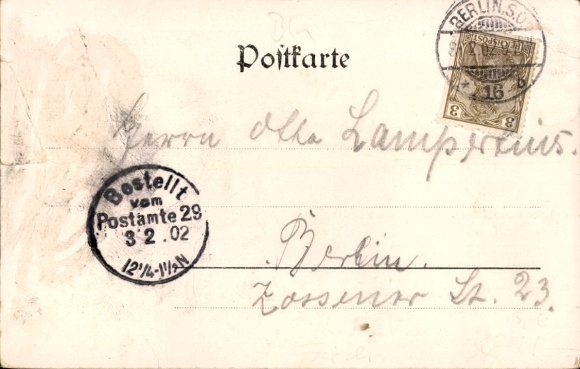 BERLIN.S.O.
16 b
3 3
Postkarte
Herrn Otto Lampertius.
Bestellt
vom
Postamte 29
3 2 .02
12¼-1½N
Berlin.
Zossener St. 23.